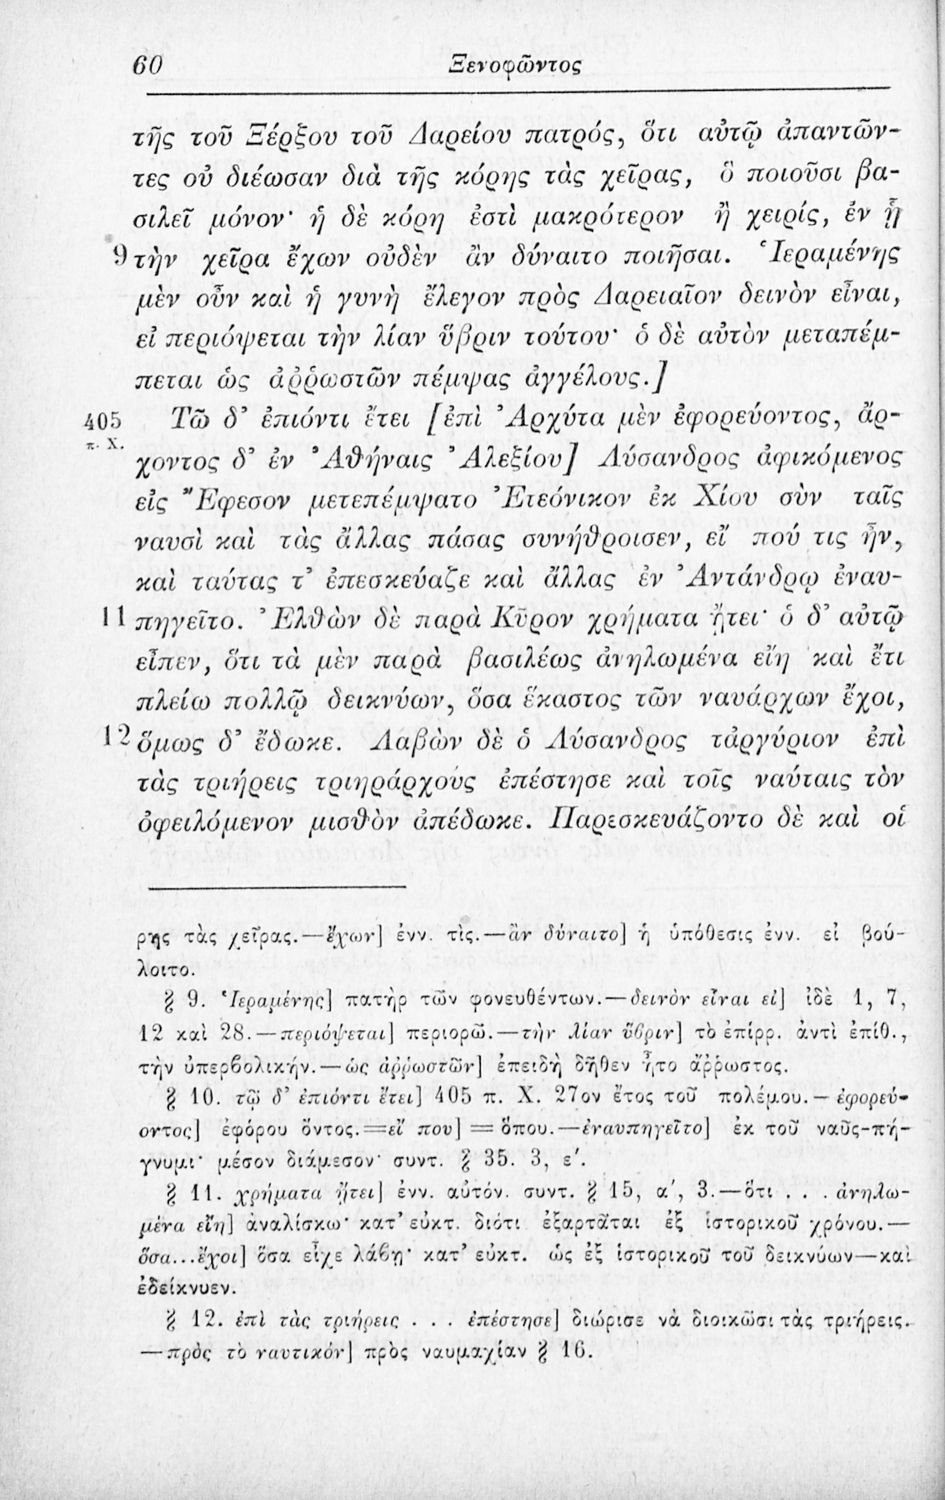 60 Ξενοφῶντος
τῆς τοῦ Ξέρξου τοῦ Δαρείου πατρός, ὅτι αὐτῷ ἀπαντῶν-
τες οὐ διέωσαν διὰ τῆς κόρης τὰς χεῖρας, ὃ ποιοῦσι βα-
σιλεῖ μόνον· ἡ δὲ κόρη ἐστὶ μακρότερον ἢ χειρίς, ἐν ᾗ
9 τὴν χεῖρα ἔχων οὐδὲν ἂν δύναιτο ποιῆσαι. Ἱεραμένης
μὲν οὖν καὶ ἡ γυνὴ ἔλεγον πρὸς Δαρειαῖον δεινὸν εἶναι,
εἰ περιόψεται τὴν λίαν ὕβριν τούτου· ὁ δὲ αὐτὸν μεταπέμ-
πεται ὡς ἀῤῥωστῶν πέμψας ἀγγέλους.]
405 Τῶ δ' ἐπιόντι ἔτει [ἐπὶ Ἀρχύτα μὲν ἐφορεύοντος, ἄρ-
π. Χ. χοντος δ' ἐν Ἀθήναις Ἀλεξίου] Λύσανδρος ἀφικόμενος
εἰς Ἔφεσον μετεπέμψατο Ἐτεόνικον ἐκ Χίου σὺν ταῖς
ναυσὶ καὶ τὰς ἄλλας πάσας συνήθροισεν, εἴ πού τις ἦν,
καὶ ταύτας τ' ἐπεσκεύαζε καὶ ἄλλας ἐν Ἀντάνδρῳ ἐναυ-
11 πηγεῖτο. Ἐλθὼν δὲ παρὰ Κῦρον χρήματα ᾔτει· ὁ δ' αὐτῷ
εἶπεν, ὅτι τὰ μὲν παρὰ βασιλέως ἀνηλωμένα εἴη καὶ ἔτι
πλείω πολλῷ δεικνύων, ὅσα ἕκαστος τῶν ναυάρχων ἔχοι,
12 ὅμως δ' ἔδωκε. Λαβὼν δὲ ὁ Λύσανδρος τἀργύριον ἐπὶ
τὰς τριήρεις τριηράρχους ἐπέστησε καὶ τοῖς ναύταις τὸν
ὀφειλόμενον μισθὸν ἀπέδωκε. Παρεσκευάζοντο δὲ καὶ οἱ
ρης τὰς χεῖρας.—ἔχων] ἐνν. τὶς.—ἂν δύναιτο] ἡ ὑπόθεσις ἐνν. εἰ βού-
λοιτο.
§ 9. Ἱεραμένης] πατὴρ τῶν φονευθέντων.—δεινὸν εἶναι εἰ] ἰδὲ 1, 7,
12 καὶ 28.—περιόψεται] περιορῶ.—τὴν λίαν ὕβριν] τὸ ἐπίρρ. ἀντὶ ἐπίθ.,
τὴν ὑπερβολικήν.—ὡς ἀῤῥωστῶν] ἐπειδὴ δῆθεν ἦτο ἄῤῥωστος.
§ 10. τῷ δ' ἐπιόντι ἔτει] 405 π. Χ. 27ον ἔτος τοῦ πολέμου.—ἐφορεύ-
οντος] ἐφόρου ὄντος.=εἴ που] = ὅπου.—ἐναυπηγεῖτο] ἐκ τοῦ ναῦς-πή-
γνυμι· μέσον διάμεσον· συντ. § 35. 3, ε'.
§ 11. χρήματα ᾔτει] ἐνν. αὐτόν. συντ. § 15, α', 3.—ὅτι . . . ἀνηλω-
μένα εἴη] ἀναλίσκω· κατ' εὐκτ. διότι ἐξαρτᾶται ἐξ ἱστορικοῦ χρόνου.—
ὅσα...ἔχοι] ὅσα εἶχε λάβῃ· κατ' εὐκτ. ὡς ἐξ ἱστορικοῦ τοῦ δεικνύων—καὶ
ἐδείκνυεν.
§ 12. ἐπὶ τὰς τριήρεις . . . ἐπέστησε] διώρισε νὰ διοικῶσι τὰς τριήρεις.
—πρὸς τὸ ναυτικόν] πρὸς ναυμαχίαν § 16.